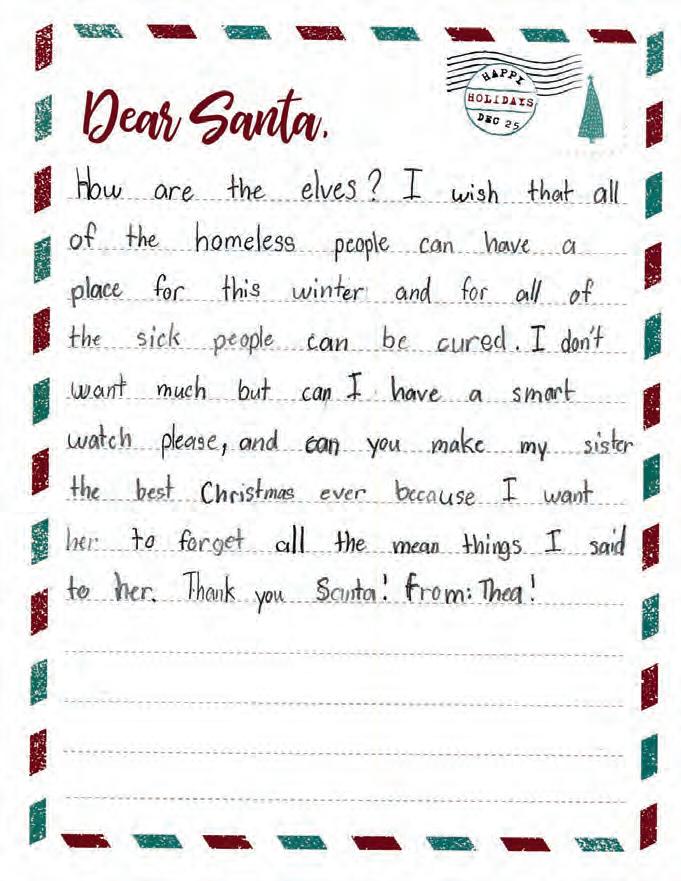 HAPPY
HOLIDAYS
DEC 25
Dear Santa,
How are the elves? I wish that all
of the homeless people can have a
place for this winter and for all of
the sick people can be cured. I don't
want much but can I have a smart
watch please, and can you make my sister
the best Christmas ever because I want
her to forget all the mean things I said
to her. Thank you Santa! From: Thea!